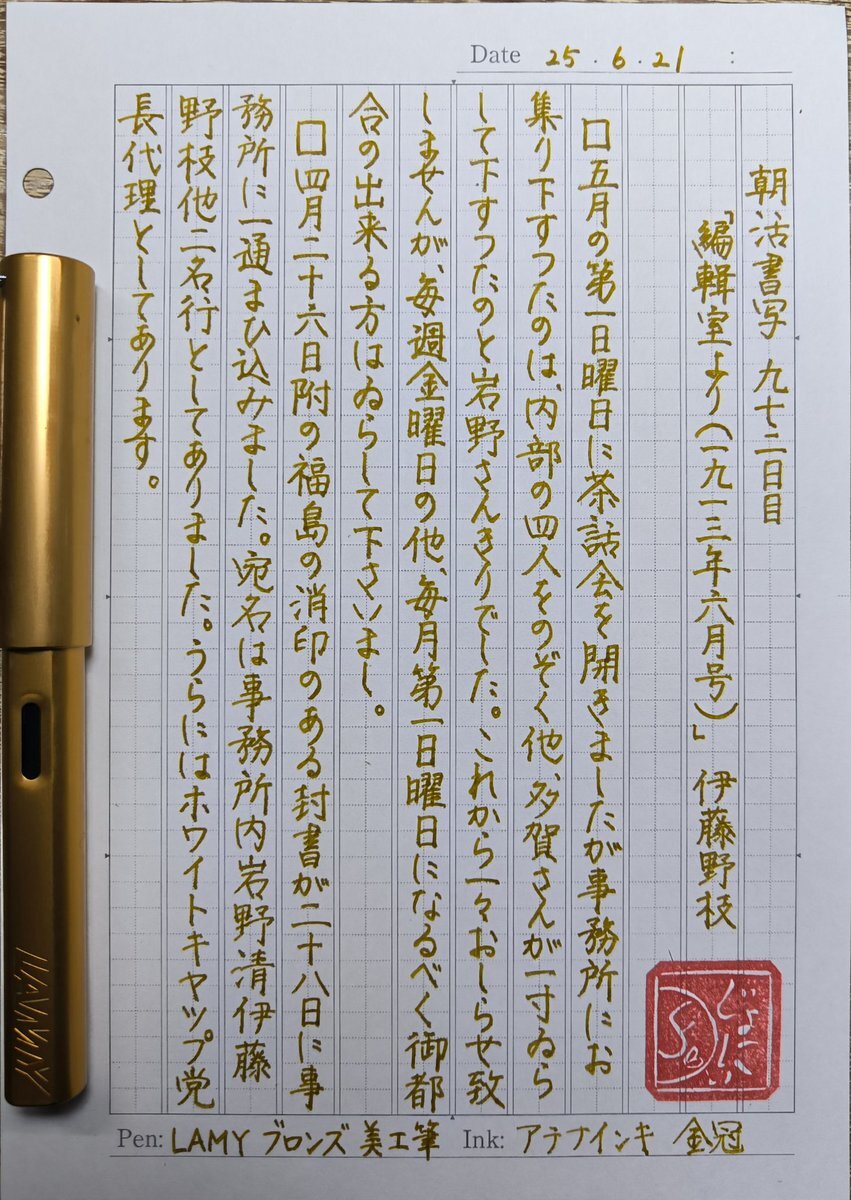 Date 25.6.21 :
朝活書写 九七二日目
「編輯室より(一九一三年六月号)」 伊藤野枝
□五月の第一日曜日に茶話会を開きましたが事務所にお
集り下すつたのは、内部の四人をのぞく他、多賀さんが一寸ゐら
して下すつたのと岩野さんきりでした。これから一々おしらせ致
しませんが、毎週金曜日の他、毎月第一日曜日になるべく御都
合の出来る方はゐらして下さいまし。
□四月二十六日附の福島の消印のある封書が二十八日に事
務所に一通まひ込みました。宛名は事務所内岩野清伊藤
野枝他二名行としてありました。うらにはホワイトキヤツプ党
長代理としてあります。
じょにぃ
Pen: LAMY ブロンズ 美工筆 Ink: アテナインキ 金冠
LAMY